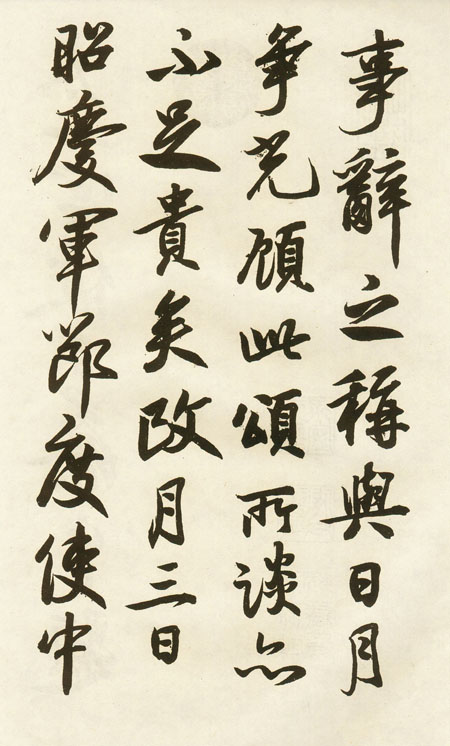 事辭之稱與日月
爭光顧此頌所談亦
不足貴矣改月三日
昭慶軍節度使中